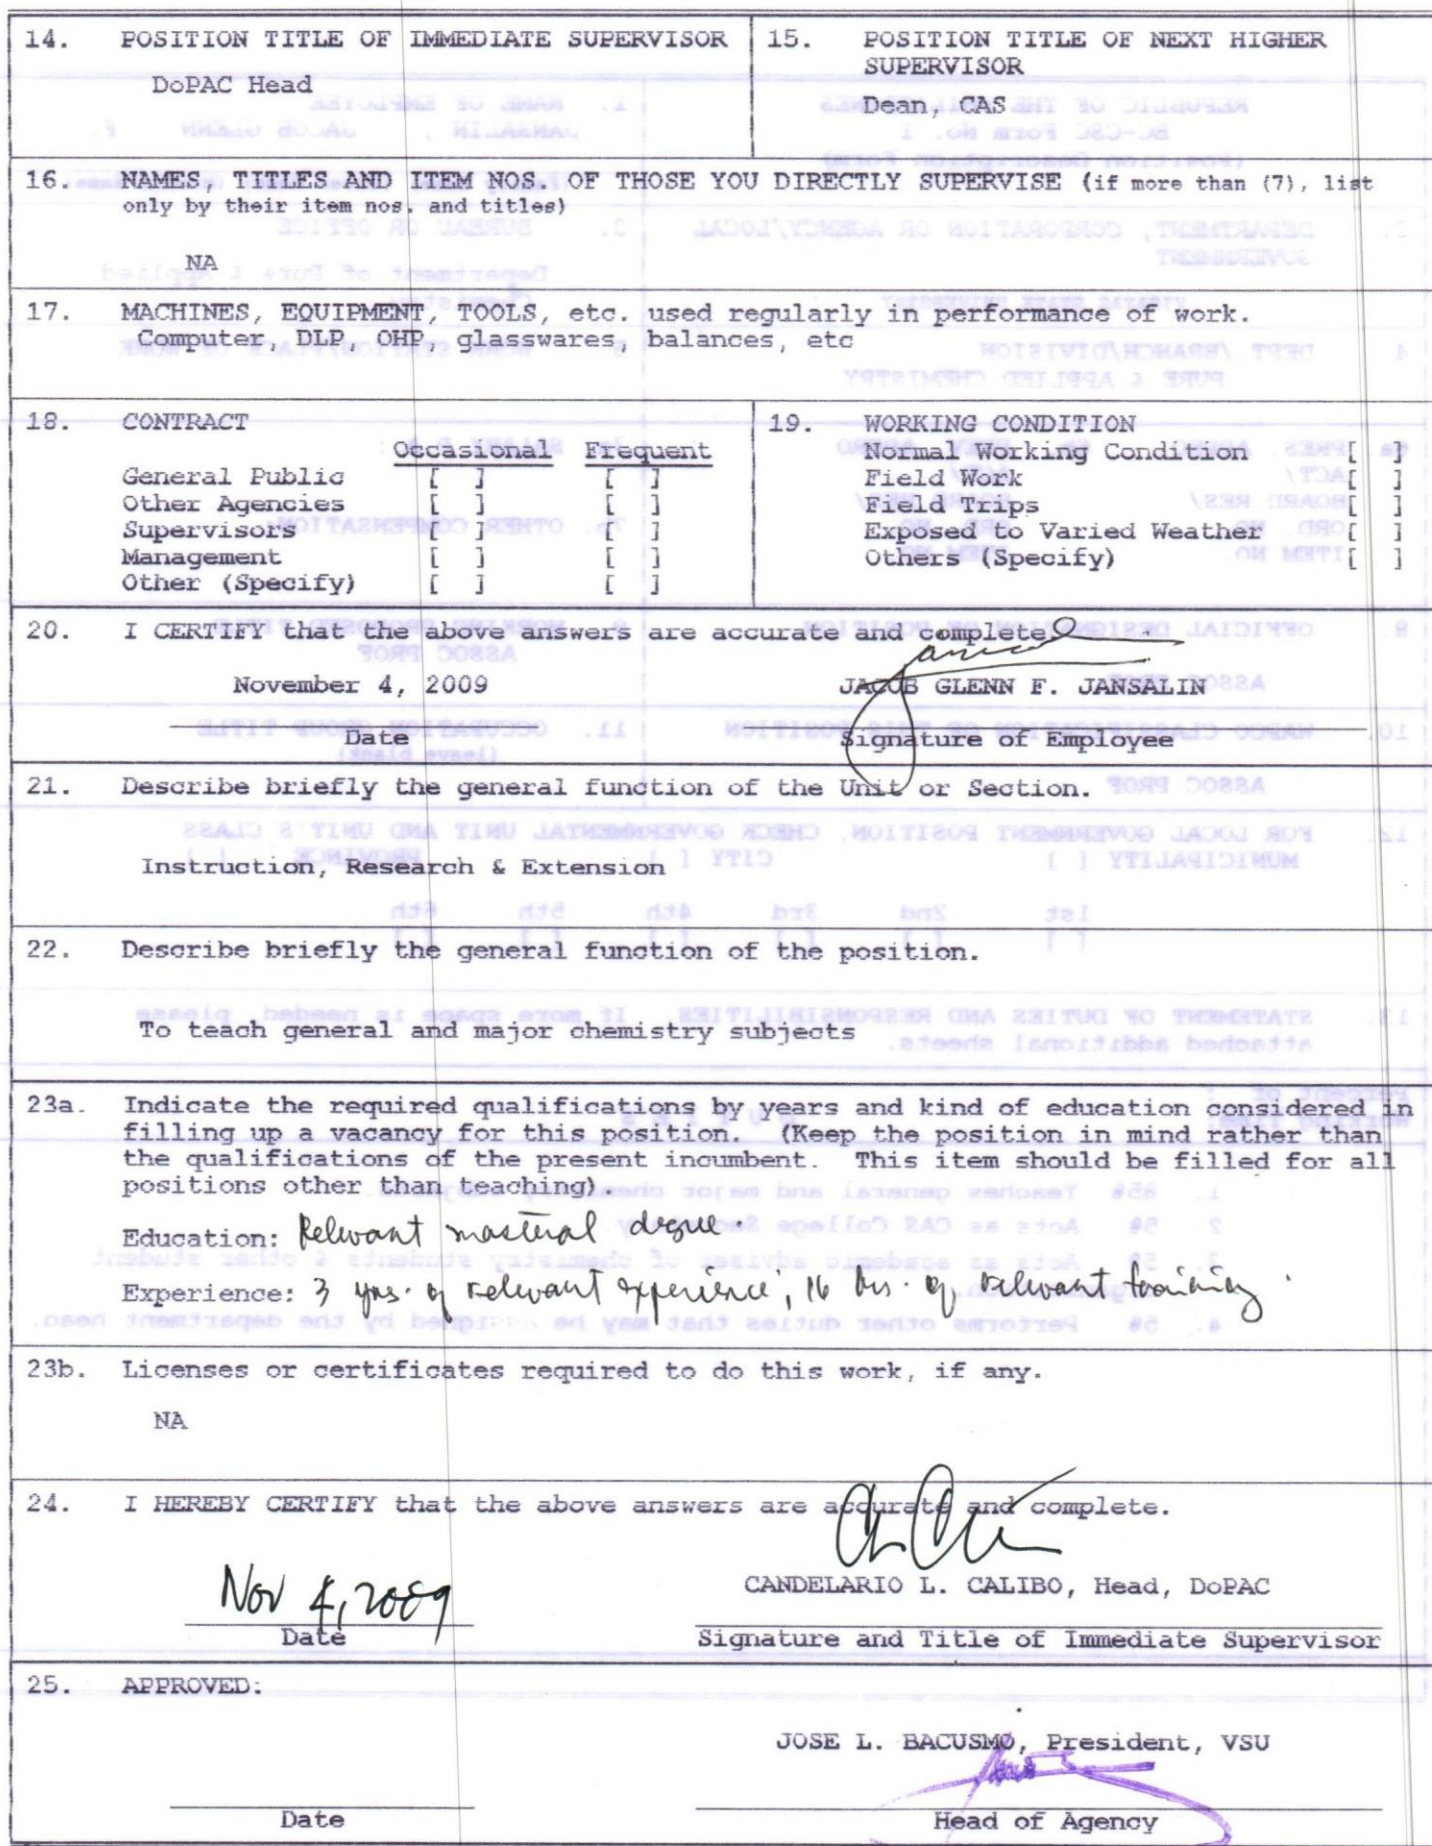 14. POSITION TITLE OF IMMEDIATE SUPERVISOR
DoPAC Head
15. POSITION TITLE OF NEXT HIGHER
SUPERVISOR
Dean, CAS
16. NAMES, TITLES AND ITEM NOS. OF THOSE YOU DIRECTLY SUPERVISE (if more than (7), list
only by their item nos. and titles)
NA
17. MACHINES, EQUIPMENT, TOOLS, etc. used regularly in performance of work.
Computer, DLP, OHP, glasswares, balances, etc
18. CONTRACT
Occasional Frequent
General Public [ ] [ ]
Other Agencies [ ] [ ]
Supervisors [ ] [ ]
Management [ ] [ ]
Other (Specify) [ ] [ ]
19. WORKING CONDITION
Normal Working Condition [ ]
Field Work [ ]
Field Trips [ ]
Exposed to Varied Weather [ ]
Others (Specify) [ ]
20. I CERTIFY that the above answers are accurate and complete
November 4, 2009 JACOB GLENN F. JANSALIN
Date Signature of Employee
21. Describe briefly the general function of the Unit or Section.
Instruction, Research & Extension
22. Describe briefly the general function of the position.
To teach general and major chemistry subjects
23a. Indicate the required qualifications by years and kind of education considered in
filling up a vacancy for this position. (Keep the position in mind rather than
the qualifications of the present incumbent. This item should be filled for all
positions other than teaching).
Education: Relevant masteral degree.
Experience: 3 yrs. of relevant experience; 16 hrs. of relevant training.
23b. Licenses or certificates required to do this work, if any.
NA
24. I HEREBY CERTIFY that the above answers are accurate and complete.
Nov 4, 2009 CANDELARIO L. CALIBO, Head, DoPAC
Date Signature and Title of Immediate Supervisor
25. APPROVED:
JOSE L. BACUSMO, President, VSU
Date Head of Agency